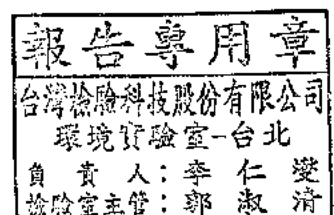 報告專用章
台灣檢驗科技股份有限公司
環境實驗室-台北
負責人:李仁燮
檢驗室主管:鄭淑清